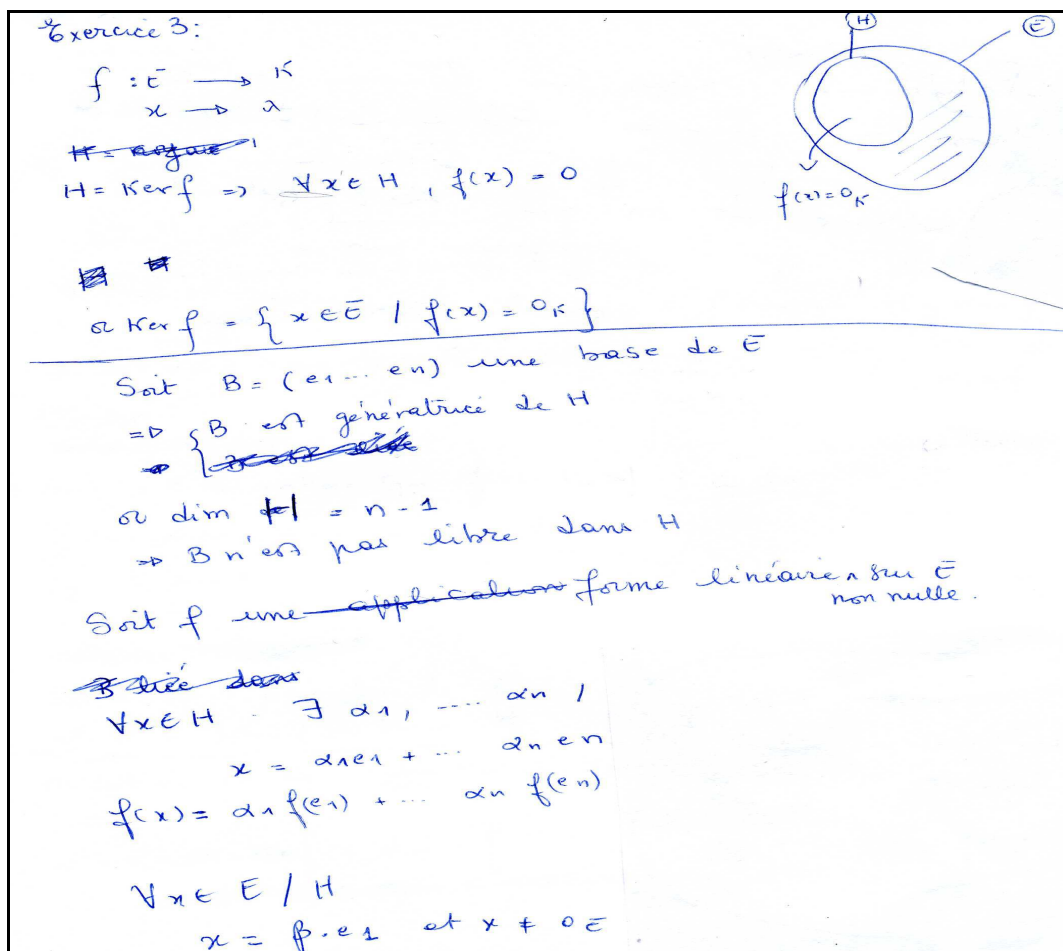 Exercice 3:
H
E
f : E → K
x → λ
H = Ker f => ∀x ∈ H , f(x) = 0
f(x) = 0K
or Ker f = { x ∈ E / f(x) = 0K }
Soit B = (e1 ... en) une base de E
=> { B est génératrice de H
or dim H = n - 1
=> B n'est pas libre dans H
Soit f une application forme linéaire ∧ sur E
non nulle.
B liée dans
∀x ∈ H ∃ α1, .... αn /
x = α1e1 + ... αn en
f(x) = α1 f(e1) + ... αn f(en)
∀x ∈ E / H
x = β.e1 et x ≠ 0E